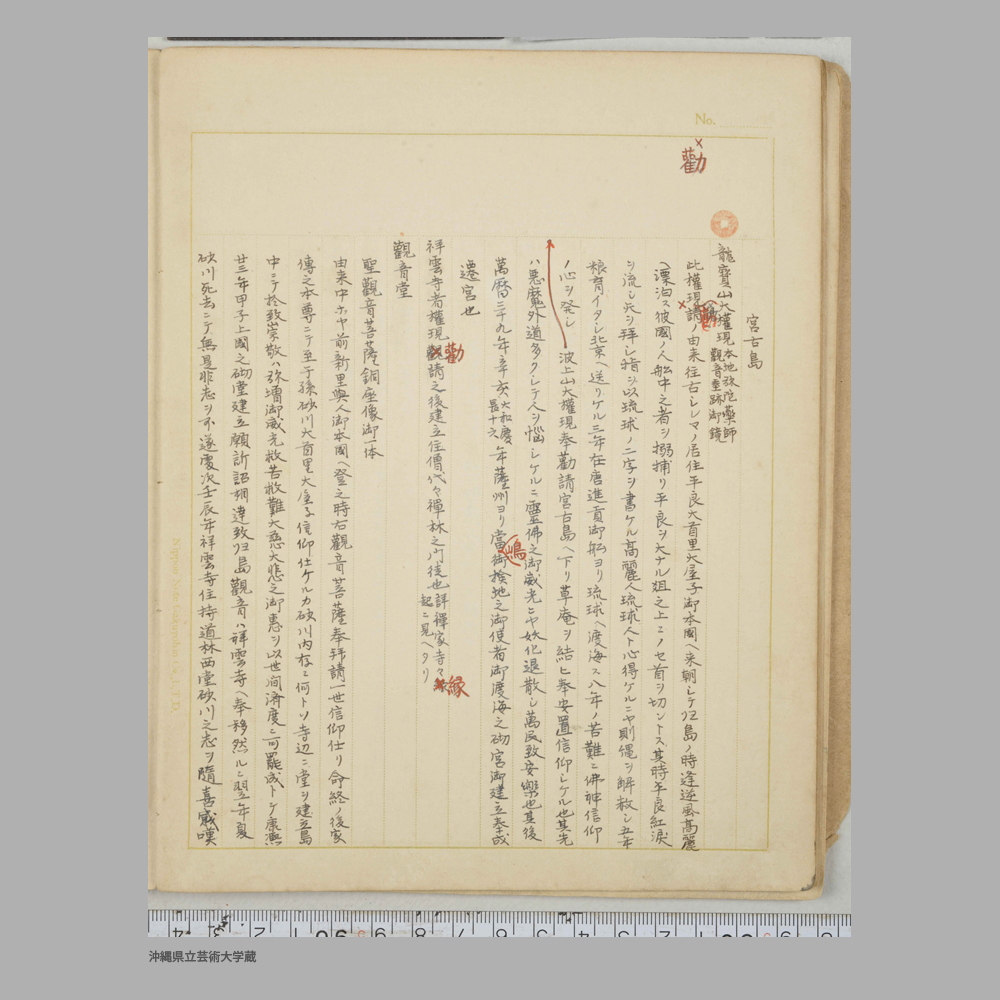 No.
勸
宮古島
龍寶山大權現 本地弥陀薬師 觀音垂跡御鏡
此權現勸請ノ由来往古シレマノ居住平良大首里大屋子御本國ヘ来朝シケ归島ノ時逢逆風高麗
ヘ漂泊ス彼國ノ人船中之者ヲ搦捕リ平良ヲ大ナル俎之上ニノセ首ヲ切ントス其時平良紅涙
ヲ流シ天ヲ拜シ指ヲ以琉球ノ二字ヲ書ケル高麗人琉球人ト心得ケルニヤ則縄ヲ解赦シ五年
粮育イタシ北京ヘ送リケル三年在唐進貢御舩ヨリ琉球ヘ渡海ス八年ノ苦難ニ佛神信仰
ノ心ヲ発シ 波上山大權現奉勸請宮古島ヘ下リ草庵ヲ結ヒ奉安置信仰シケル也其先
ハ悪魔外道多クシテ人ヲ悩シケルニ靈佛之御威光ニヤ妖化退散シ萬民致安樂也其後
萬暦三十九年辛亥 大和慶長十六 年薩州ヨリ當嶋御檢地之御使者御渡海之砌宮御建立奉成
遷宮也
祥雲寺者權現勸請之後建立住僧代々禪林之門徒也 詳禪家寺々縁起ニ見ヘタリ
觀音堂
聖觀音菩薩銅座像御一体
由来中ホヤ前新里與人御本國ヘ登之時右觀音菩薩奉拜請一世信仰仕リ命終ノ後家
傳之本尊ニテ至子孫砂川大首里大屋子信仰仕ケルカ砂川内存ニ何トソ寺辺ニ堂ヲ建立島
中ニテ於致崇敬ハ弥増御威光救苦救難大慈大悲之御惠ヲ以世間済度ニ可罷成トケ康熙
廿三年甲子上國之砌堂建立願訴詔相達致归島觀音ハ祥雲寺ヘ奉移然ルニ翌年夏
砂川死去ニテ無是非志ヲ不遂慶次壬辰年祥雲寺住持道林西堂砂川之志ヲ隨喜感嘆
沖縄県立芸術大学蔵